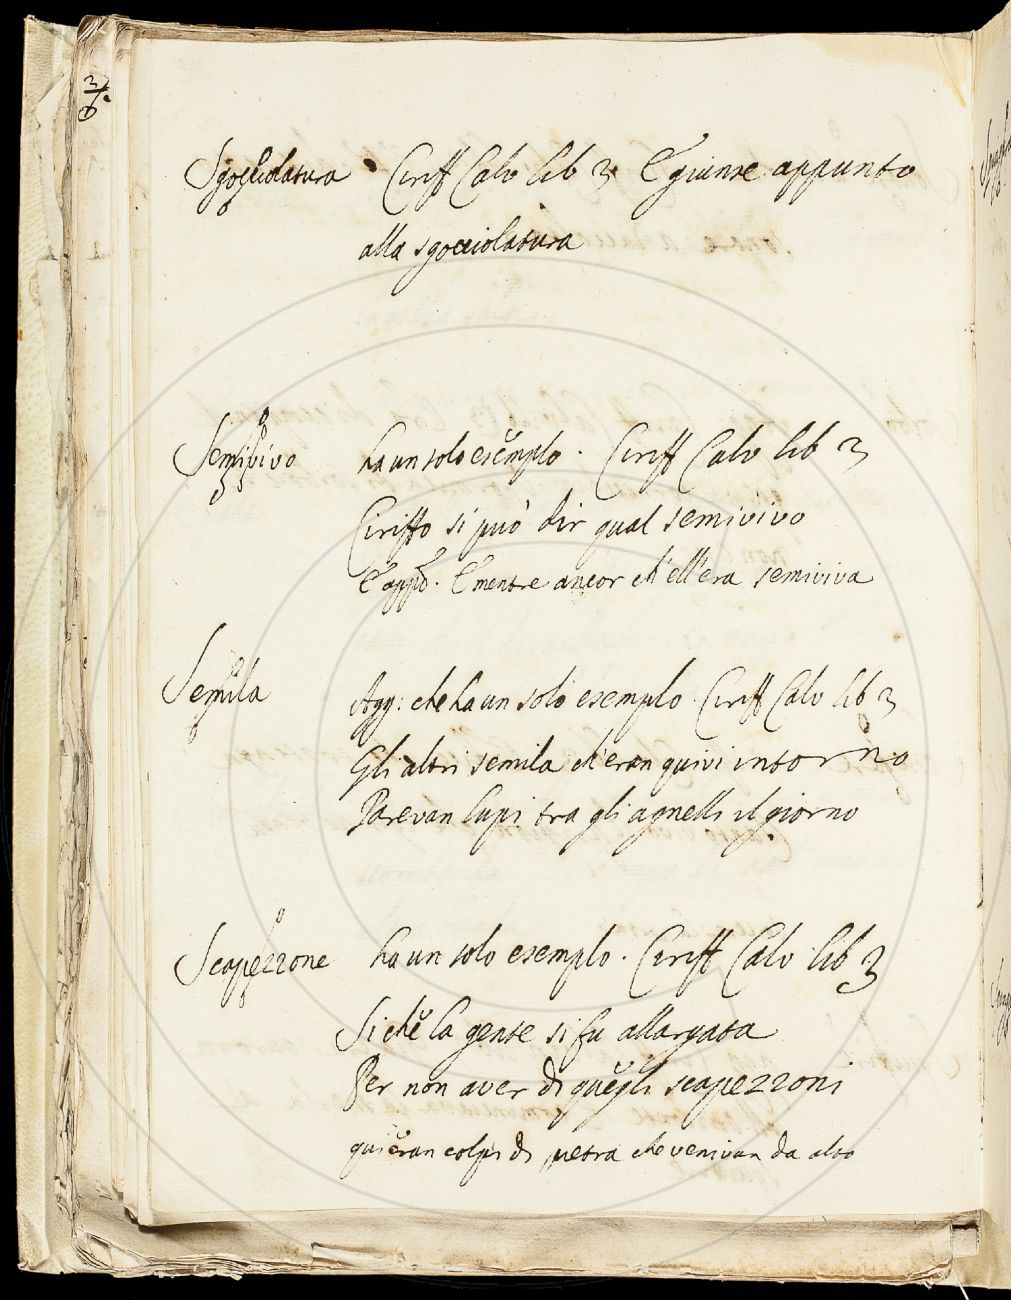 Sgocciolatura Ciriff Calv lib 3 E giunse appunto
alla sgocciolatura
Semivivo ha un solo esemplo. Ciriff Calv lib 3
Ciriffo si può dir qual semivivo
E app.º E mentre ancor ch'ell'era semiviva
Semila Agg: che ha un solo esemplo. Ciriff Calv lib 3
Gli altri semila ch'eran quivi intorno
Parevan lupi tra gli agnelli il giorno
Scapezzone ha un solo esemplo. Ciriff Calv lib 3
Sì che la gente si fu allargata
Per non aver di quegli scapezzoni
qui eran colpi di pietra che venivan da alto